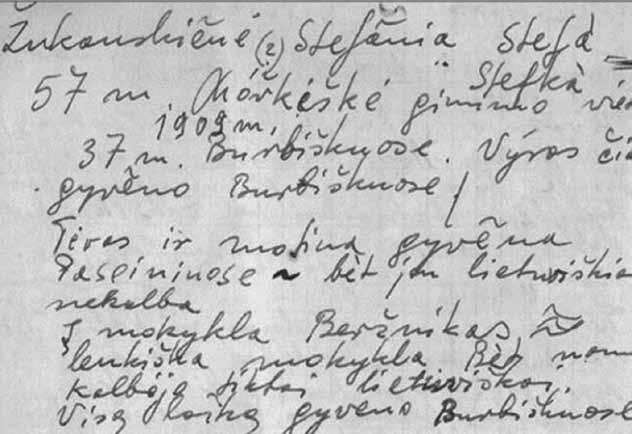 Žukauskienė (2) Stefãnia Stefà
Stefkà
57 m. Mórkẽškė gimimo
1909 m.
37 m. Burbiškuose. Výras
gyvẽno Burbiškuose /
Tėvas ir motina gyvẽna
Paseininuose ~ bèt jau lietuviškai
nekalba
Į mokykla Beržnikas
lenkiška mokykla Bèt
kalbėja tiktai lietuviškai.
Visą laiką gyveno Burbiškuose